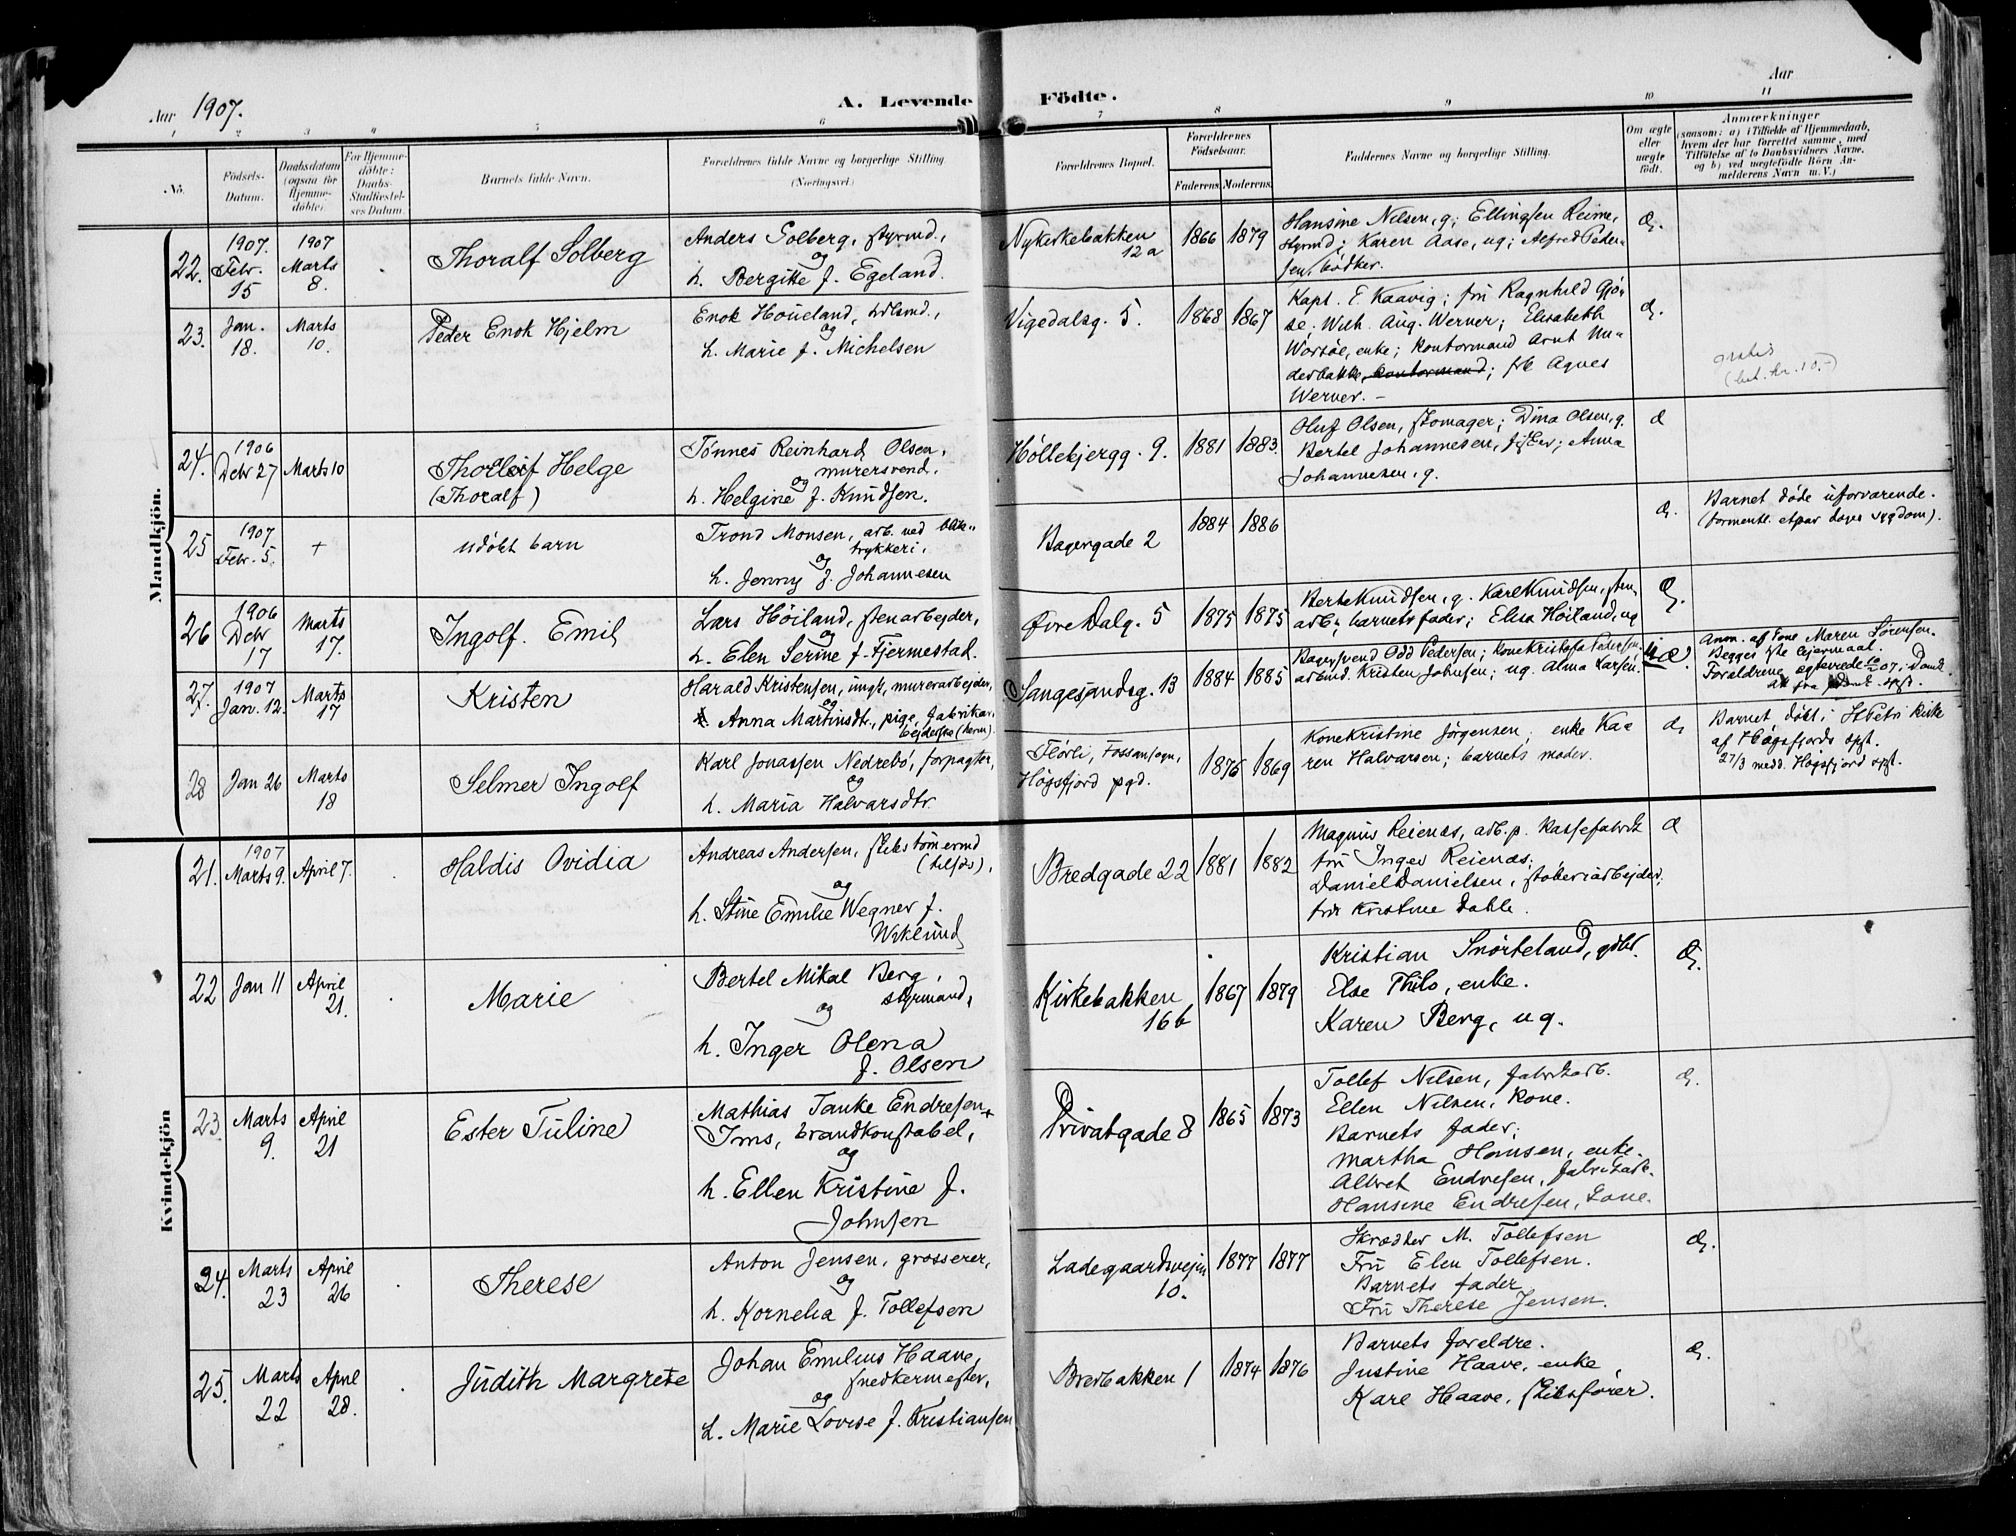 Aar 1907.
A. Levende Födte.
Aar
1 2 3 4 5 6 7 8 9 10 11
No.
Födsels-
Datum.
Daabsdatum
(ogsaa for
Hjemme-
döbte).
For Hjemme-
döbte:
Daabs-
Stadfæstel-
ses Datum.
Barnets fulde Navn.
Forældrenes fulde Navne og borgerlige Stilling
(Næringsvei.)
Forældrenes Bopæl.
Forældrenes
Födselsaar.
Faderens. Moderens.
Faddernes Navne og borgerlige Stilling.
Om ægte
eller
uægte
födt.
Anmærkninger
(saasom: a) i Tilfælde af Hjemmedaab,
hvem der har forrettet samme, med
Tilföielse af to Daabsvidners Navne,
og b) ved uægtefödte Börn An-
melderens Navn m. V.)
Mandkjön.
22. 1907. Febr. 15
1907 Marts 8.
Thoralf Solberg
Anders Solberg, styrmd.,
og
h. Bergitte f. Egeland.
Nykirkebakken
12a
1866 1879
Hansine Nilsen, g; Ellingsen Reime,
styrmd; Karen Aase, ug; Alfred Peder-
sen, bødker.
Æ.
23. Jan. 18.
Marts 10.
Peder Enok Hjelm
Enok Höueland,
og
h. Marie f. Michelsen
Vigedalsg. 5.
1868 1867
Kapt. E. Kaavig; fru Ragnhild Gjö-
se; Wilh. Aug. Werner; Elisabeth
Worsöe, enke; kontormand Arnt Un-
derbakke, kontormand; frk Agnes
Werner. -
Æ.
gratis
(bet. kr. 10.-)
24. 1906 Debr 27
Marts 10
Thorleif Helge
(Thoralf)
Tönnes Reinhard Olsen,
murersvend,
og
h. Helgine f. Knudsen.
Høllebjergg. 9.
1881 1883.
Oluf Olsen, skomager; Dina Olsen, g.
Bertel Johannesen, fisker; Anna
Johannesen, g.
Æ
25 1907. Febr. 5.
+
udöbt barn
Trond Monsen, arb. ved blik-
trykkeri,
og
h. Jenny f. Johannesen
Bagergade 2
1884 1886
Æ.
Barnet döde uforvarende.
(formentl. etpar dages sygdom).
26 1906 Debr 17
Marts 17.
Ingolf Emil
Lars Höiland, stenarbejder,
og
h. Elen Serine f. Fjermestad.
Øvre Dalg. 5
1875 1875
Berte Knudsen, g. Karl Knudsen, sten-
arb; barnets fader; Elisa Höiland, ug
Æ.
27. 1907 Jan. 12.
Marts 17
Kristen
Harald Kristensen, ungk, murerarbejder,
og
Anna Martinsdt., pige, fabrikar-
bejderske (herm).
Sangesandsg. 13
1884 1885
Bagersvend Odd Pedersen; kone Kristofa Pedersen;
arbmd. Kristen Johnsen; ug. Alma Larsen.
uæ.
Anm. af kone Maren Sørensen.
Begges 1ste lejermaal.
Foraldrene egteviede 07; Daab
28 Jan 26
Marts 18
Selmer Ingolf
Karl Jonassen Nedrebö, forpagter,
og
h. Maria Halvarsdtr
Flörli, Fossansogn,
Högsfjord pgd.
1876 1869
Kone Kristine Jörgensen, enke Kaa
ren Halvarsen; barnets moder.
Æ
Barnet döbt i St Petri kirke
af Högsfjords spst.
27/3 medd. Högsfjord spst.
Kvindekjön
21. 1907 Marts 9.
April 7.
Haldis Ovidia
Andreas Andersen, skibstömrmd
(tilsös),
og
h. Stine Emilie Wegner f.
Wiklund
Bredgade 22
1881 1882
Magnus Reienæs, arb. p. kassefabrik
fru Inger Reienæs;
Daniel Danielsen, støberiarbejder;
fru Kristine Dahle.
Æ
22 Jan 11
April 21.
Marie
Bertel Mikal Berg,
styrmand,
og
h. Inger Olena
f. Olsen
Kirkebakken
16b
1867 1879
Kristian Snörteland, gdbr.
Else Thilo, enke.
Karen Berg, ug.
Æ.
23. Marts 9.
April 21
Ester Tuline
Mathias Tanke Endresen
Ims, brandkonstabel,
og
h. Ellen Kristine f.
Johnsen
Privatgade 8
1865 1873
Tollef Nilsen, fabrikarb.
Ellen Nilsen, kone.
Barnets fader;
Martha Hansen, enke.
Albret Endresen, fabrikarb.
Hansine Endresen, kone.
Æ.
24. Marts 23
April 26
Therese
Anton Jensen, grosserer,
og
h. Kornelia f. Tollefsen
Ladegaardsvejen
10.
1877 1877
Skrædder M. Tollefsen
Fru Elen Tollefsen.
Barnets fader
Fru Therese Jensen.
Æ.
25. Marts 22
April 28.
Judith Margrete
Johan Emilius Haave,
snedkermester,
og
h. Marie Lovise f. Kristiansen
Bredbakken 1
1874 1876
Barnets foreldre.
Justine Haave, enke,
Karl Haave, skibsfører.
Æ.